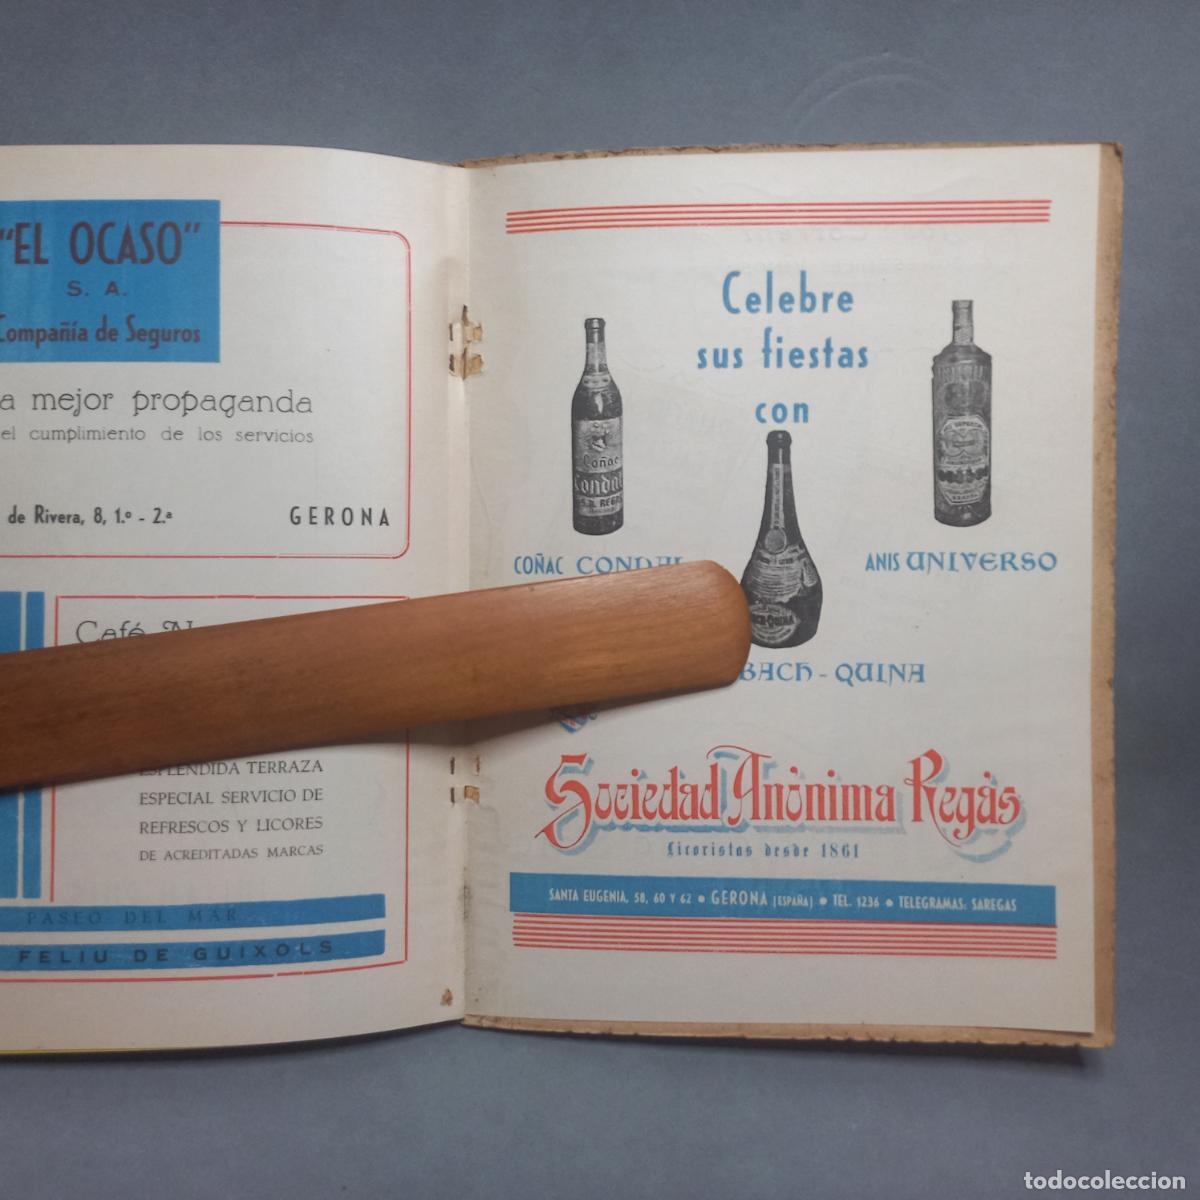 "EL OCASO"
S. A.
Compañía de Seguros
a mejor propaganda
el cumplimiento de los servicios
de Rivera, 8, 1.º - 2.ª
GERONA
Café
ESPLENDIDA TERRAZA
ESPECIAL SERVICIO DE
REFRESCOS Y LICORES
DE ACREDITADAS MARCAS
PASEO DEL MAR
FELIU DE GUIXOLS
Celebre
sus fiestas
con
Coñac
Condal
S.A. REGÁS
COÑAC CONDAL
ANIS UNIVERSO
BACH-QUINA
BACH - QUINA
Sociedad Anónima Regás
Licoristas desde 1861
SANTA EUGENIA, 58, 60 Y 62 • GERONA (ESPAÑA) • TEL. 1236 • TELEGRAMAS: SAREGAS
todocoleccion